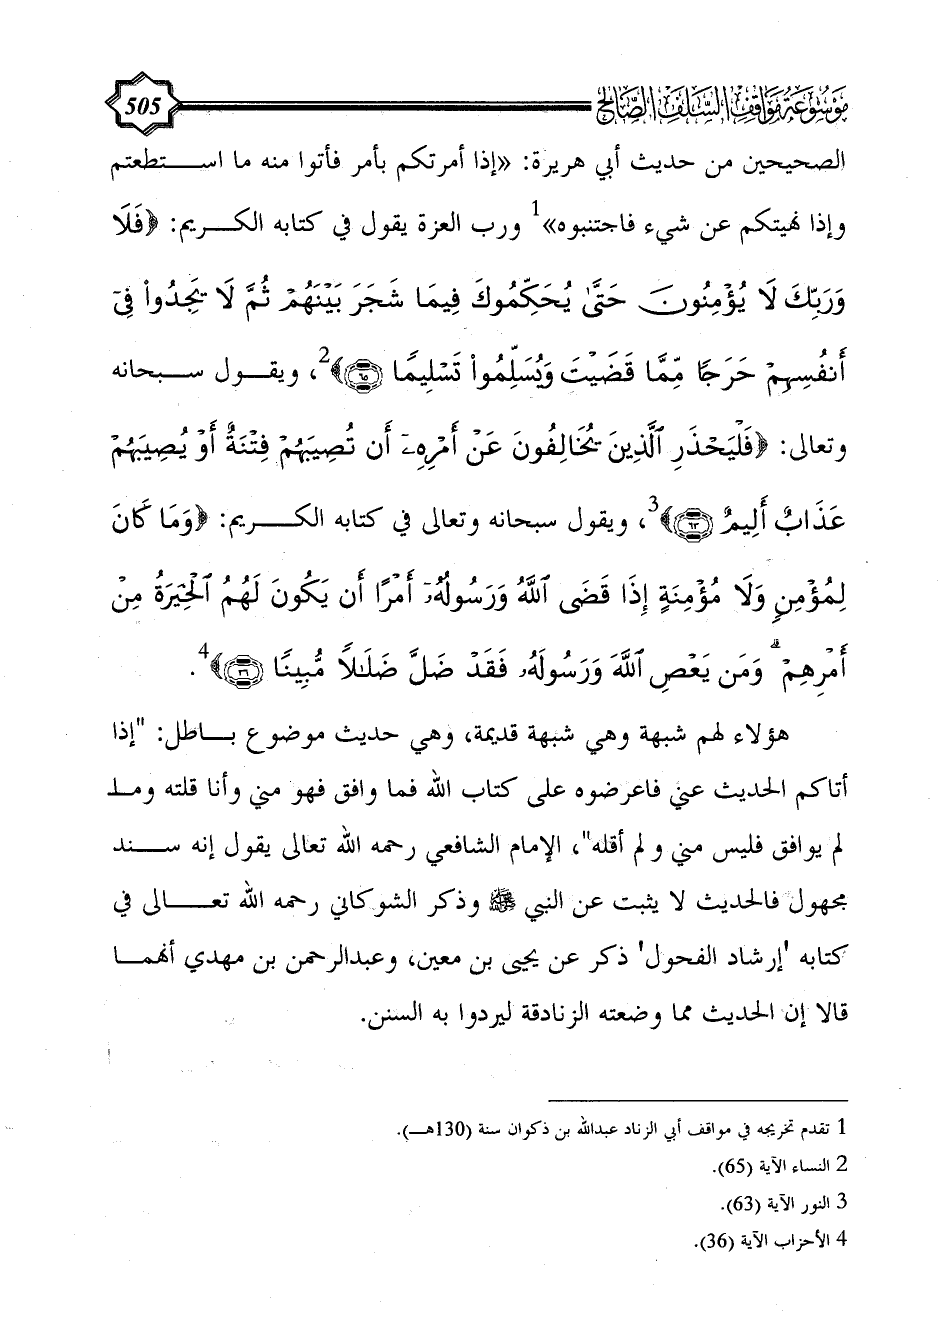 موسوعة مواقف السلف الصالح 505
الصحيحين من حديث أبي هريرة: «إذا أمرتكم بأمر فأتوا منه ما استطعتم
وإذا نهيتكم عن شيء فاجتنبوه»1 ورب العزة يقول في كتابه الكريم: ﴿فَلَا
وَرَبِّكَ لَا يُؤْمِنُونَ حَتَّىٰ يُحَكِّمُوكَ فِيمَا شَجَرَ بَيْنَهُمْ ثُمَّ لَا يَجِدُوا۟ فِىٓ
أَنفُسِهِمْ حَرَجًا مِّمَّا قَضَيْتَ وَيُسَلِّمُوا۟ تَسْلِيمًا ٦٥﴾2، ويقول سبحانه
وتعالى: ﴿فَلْيَحْذَرِ ٱلَّذِينَ يُخَالِفُونَ عَنْ أَمْرِهِۦٓ أَن تُصِيبَهُمْ فِتْنَةٌ أَوْ يُصِيبَهُمْ
عَذَابٌ أَلِيمٌ ٦٣﴾3، ويقول سبحانه وتعالى في كتابه الكريم: ﴿وَمَا كَانَ
لِمُؤْمِنٍ وَلَا مُؤْمِنَةٍ إِذَا قَضَى ٱللَّهُ وَرَسُولُهُۥٓ أَمْرًا أَن يَكُونَ لَهُمُ ٱلْخِيَرَةُ مِنْ
أَمْرِهِمْ ۗ وَمَن يَعْصِ ٱللَّهَ وَرَسُولَهُۥ فَقَدْ ضَلَّ ضَلَـٰلًا مُّبِينًا ٣٦﴾4.
هؤلاء لهم شبهة وهي شبهة قديمة، وهي حديث موضوع باطل: "إذا
أتاكم الحديث عني فاعرضوه على كتاب الله فما وافق فهو مني وأنا قلته وما
لم يوافق فليس مني و لم أقله"، الإمام الشافعي رحمه الله تعالى يقول إنه سند
مجهول فالحديث لا يثبت عن النبي ﷺ وذكر الشوكاني رحمه الله تعالى في
كتابه 'إرشاد الفحول' ذكر عن يحيى بن معين، وعبدالرحمن بن مهدي أنهما
قالا إن الحديث مما وضعته الزنادقة ليردوا به السنن.
1 تقدم تخريجه في مواقف أبي الزناد عبدالله بن ذكوان سنة (130هـ).
2 النساء الآية (65).
3 النور الآية (63).
4 الأحزاب الآية (36).